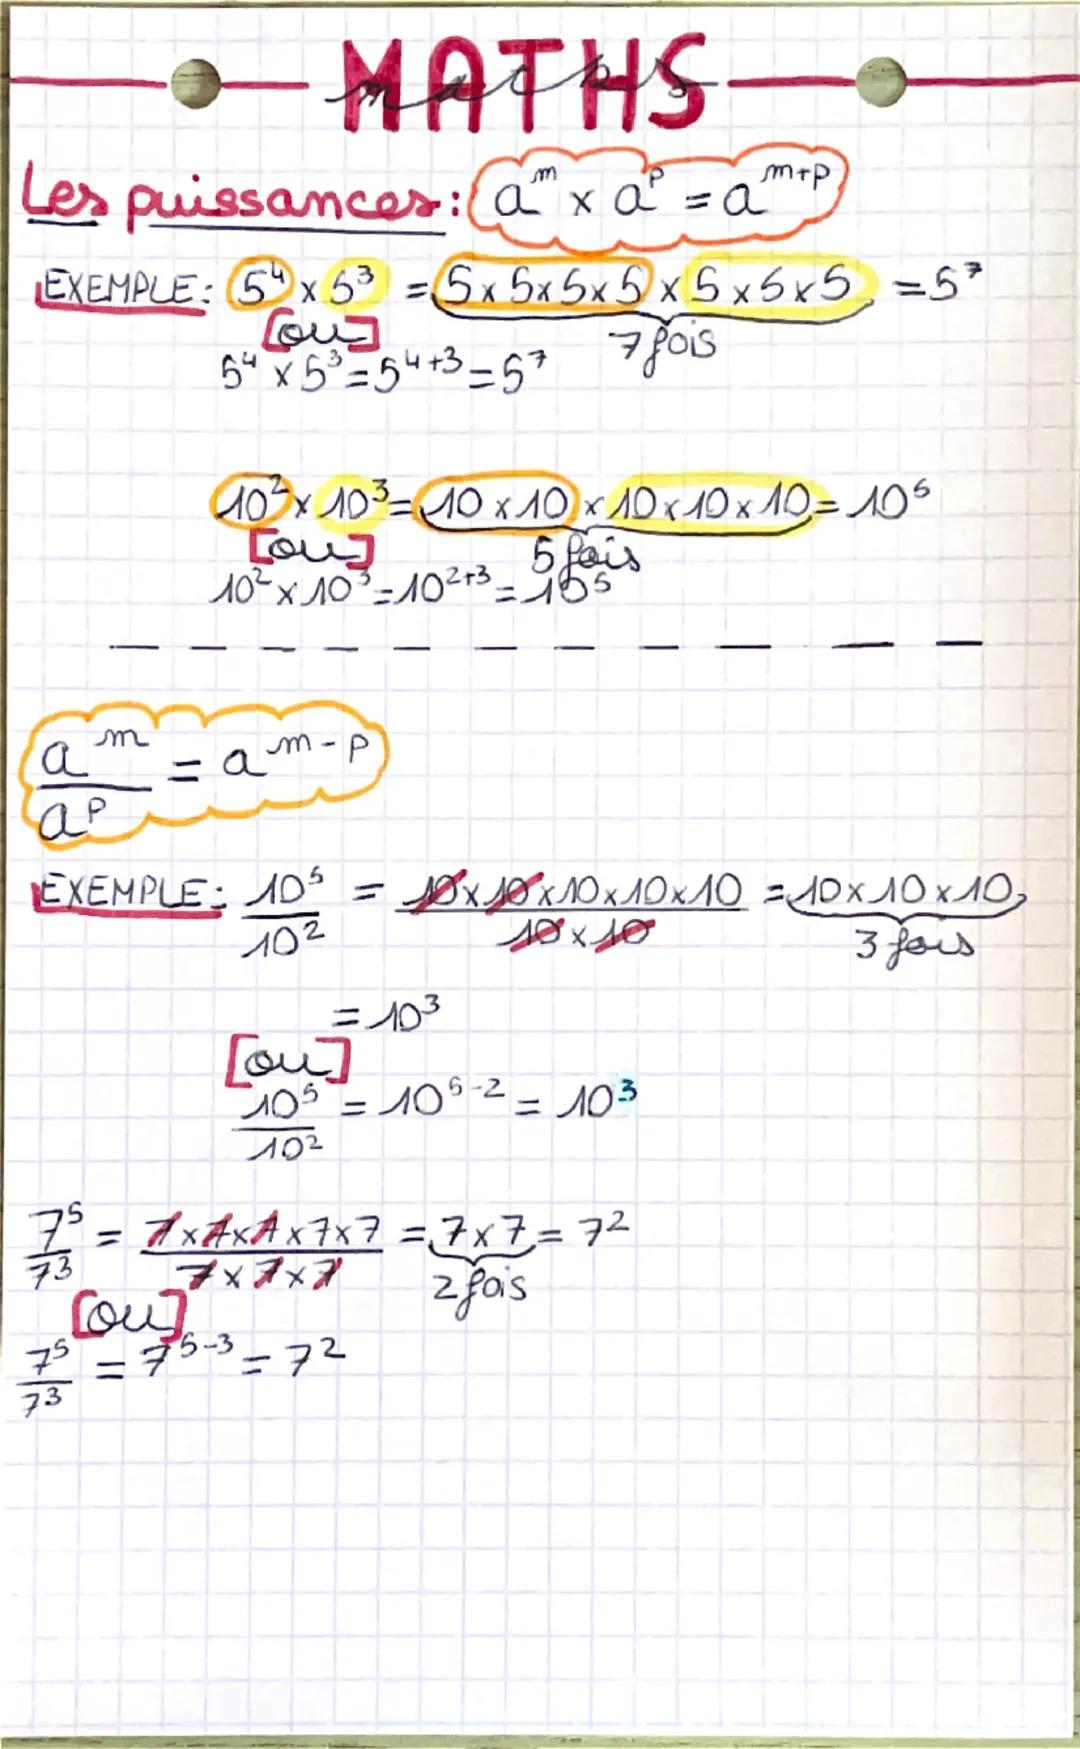 MATHS
maths
Les puissances : a^m × a^p = a^{m+p}
EXEMPLE : 5⁴ × 5³ = 5 × 5 × 5 × 5 × 5 × 5 × 5 = 5⁷
[ou] 7 fois
5⁴ × 5³ = 5⁴⁺³ = 5⁷
10² × 10³ = 10 × 10 × 10 × 10 × 10 = 10⁵
[ou] 5 fois
10² × 10³ = 10²⁺³ = 10⁵
a^m / a^p = a^{m-p}
EXEMPLE : 10⁵ / 10² = 10 × 10 × 10 × 10 × 10 / 10 × 10 = 10 × 10 × 10
3 fois
= 10³
[ou]
10⁵ / 10² = 10⁵⁻² = 10³
7⁵ / 7³ = 7 × 7 × 7 × 7 × 7 / 7 × 7 × 7 = 7 × 7 = 7²
[ou] 2 fois
7⁵ / 7³ = 7⁵⁻³ = 7²